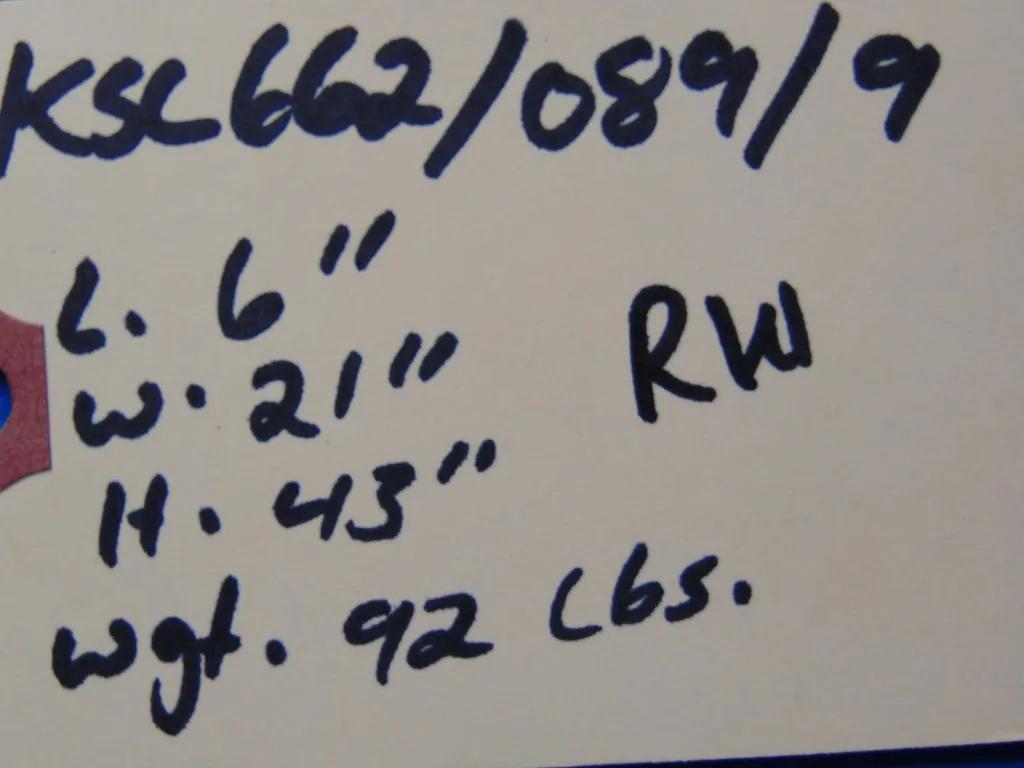 KSC662/089/9
L. 6"
W. 21"
RW
H. 43"
wgt. 92 Lbs.